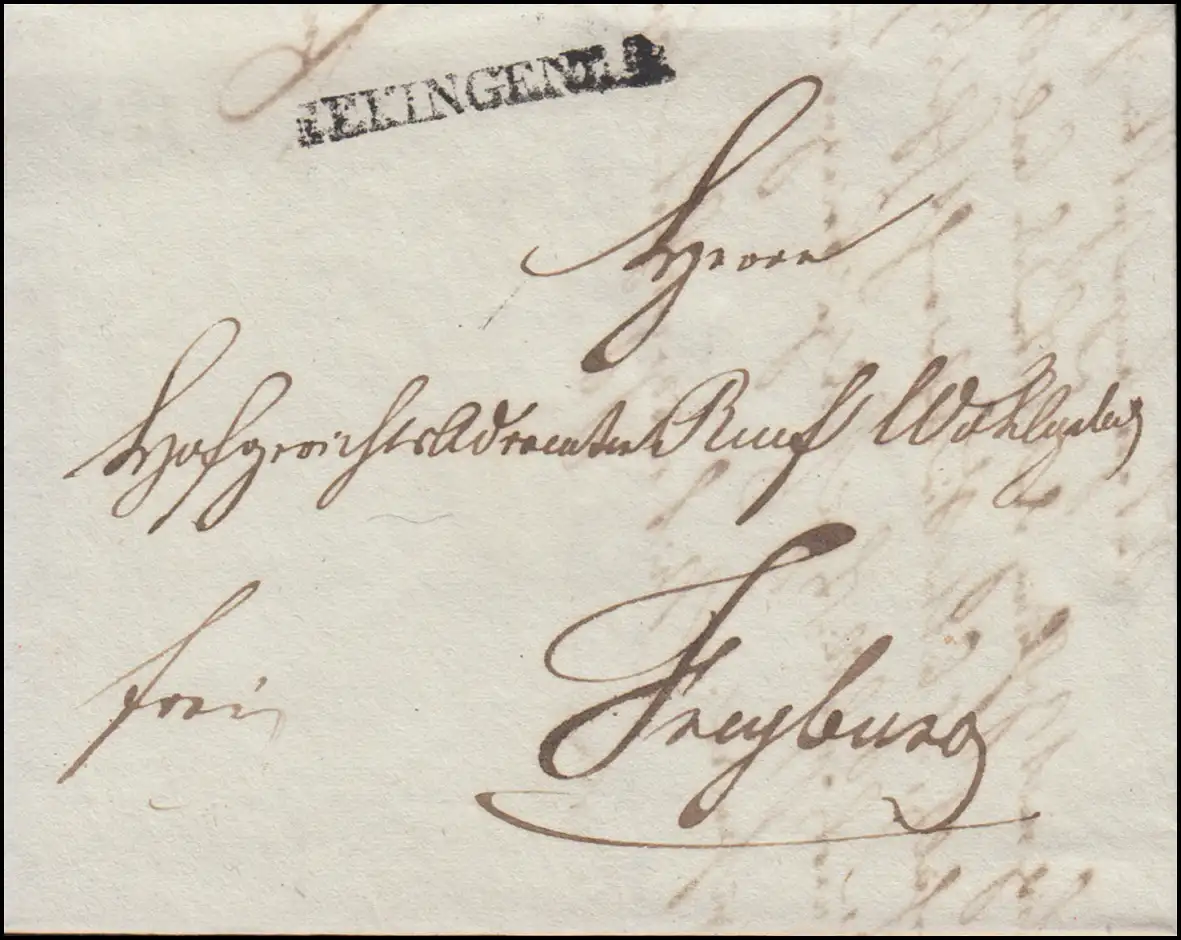 KEKINGEN R.
Herrn
Hofgerichtsadvocaten Ruef Wohlgeb
frei
Freyburg